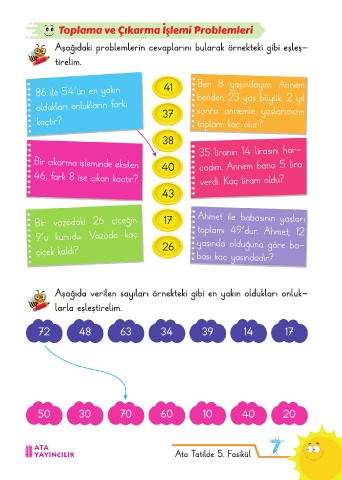 Toplama ve Çıkarma İşlemi Problemleri
Aşağıdaki problemlerin cevaplarını bularak örnekteki gibi eşleş-
tirelim.
86 ile 54'ün en yakın
oldukları onlukların farkı
kaçtır?
Bir çıkarma işleminde eksilen
46, fark 8 ise çıkan kaçtır?
Bir vazodaki 26 çiçeğin
9'u kurudu. Vazoda kaç
çiçek kaldı?
41
37
38
40
43
17
26
Ben 8 yaşındayım. Annem
benden 23 yaş büyük. 2 yıl
sonra annemle yaşlarımızın
toplamı kaç olur?
35 liranın 14 lirasını har-
cadım. Annem bana 5 lira
verdi. Kaç liram oldu?
Ahmet ile babasının yaşları
toplamı 49'dur. Ahmet, 12
yaşında olduğuna göre ba-
bası kaç yaşındadır?
Aşağıda verilen sayıları örnekteki gibi en yakın oldukları onluk-
larla eşleştirelim.
72 48 63 34 39 14 17
50 30 70 60 10 40 20
ATA
YAYINCILIK
Ata Tatilde 5. Fasikül
7